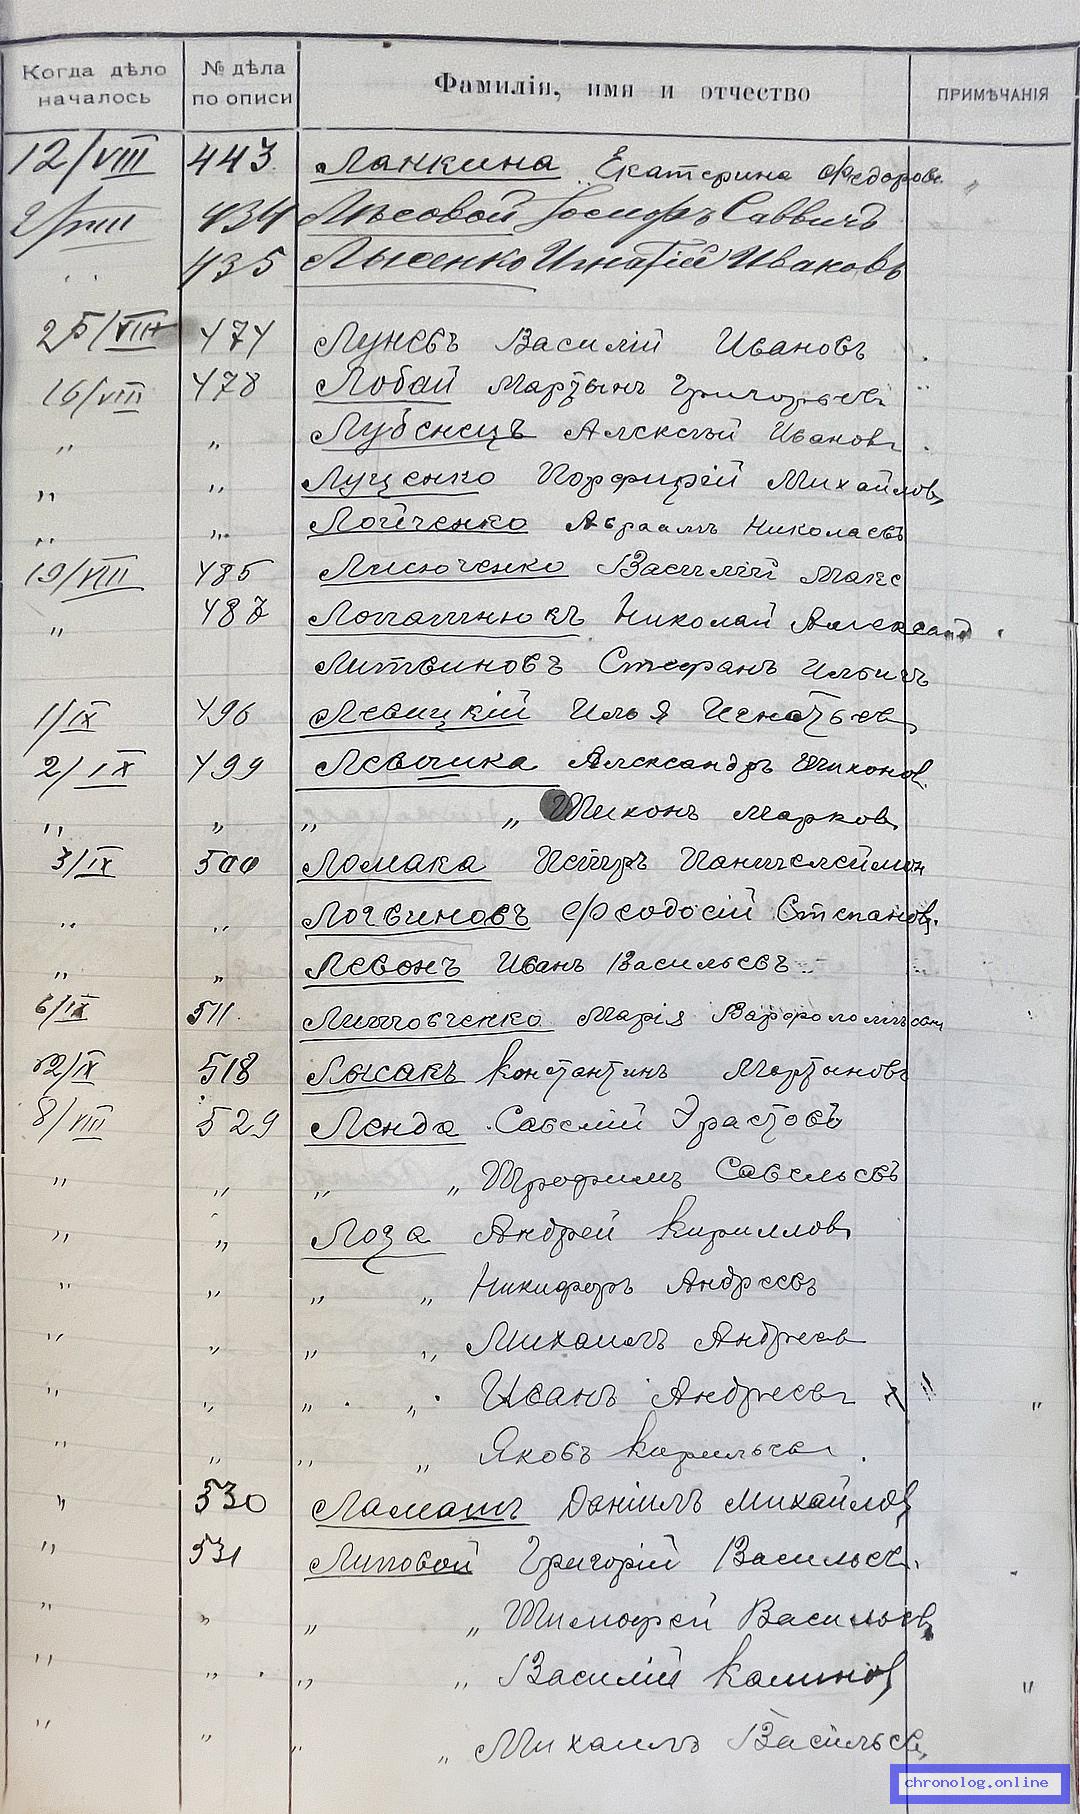 Когда дѣло началось № дѣла по описи Фамилія, имя и отчество ПРИМѢЧАНІЯ
12/VIII 443 Ланкина Екатерина Федоровн.
2/VIII 434 Лѣсовой Іосифъ Саввичъ
" 435 Лысенко Игнатій Ивановъ
25/VIII 474 Луневъ Василій Ивановъ
16/VIII 478 Лобай Мартынъ Григорьев "
" " Лубенецъ Алексѣй Иванов
" " Луценко Порфирій Михайлов
" " Лойченко Авраамъ Николаевъ
19/VIII 485 Василій Макс
" 487 Лопатнюкъ Николай Александ
Литвиновъ Стефанъ Ильичъ
1/IX 496 Левицкій Илья Игнатьев
2/IX 499 Левшика Александръ Тихонов
" " " " Тихонъ Марков
3/IX 500 Ломака Петръ Пантелеймон
" " Логвиновъ Феодосій Степанов
" " Левонъ Иванъ Васильевъ
6/IX 511 Литовченко Марія Варфоломѣевн
12/IX 518 Лысакъ Константинъ Мартыновъ
8/VIII 529 Ленда Савелій Эрастовъ
" " " " Трофимъ Савельевъ
" " Лоза Андрей Кириллов
" " " " Никифоръ Андреевъ
" " " " Михаилъ Андреев
" " " " Иванъ Андреев " "
" " " " Яковъ Кирильев
" 530 Ламашъ Даніилъ Михайлов
" 531 Липовой Григорій Васильев.
" " " " Тимофей Васильев
" " " " Василій Калинов "
" " " " Михаилъ Васильев
chronolog.online